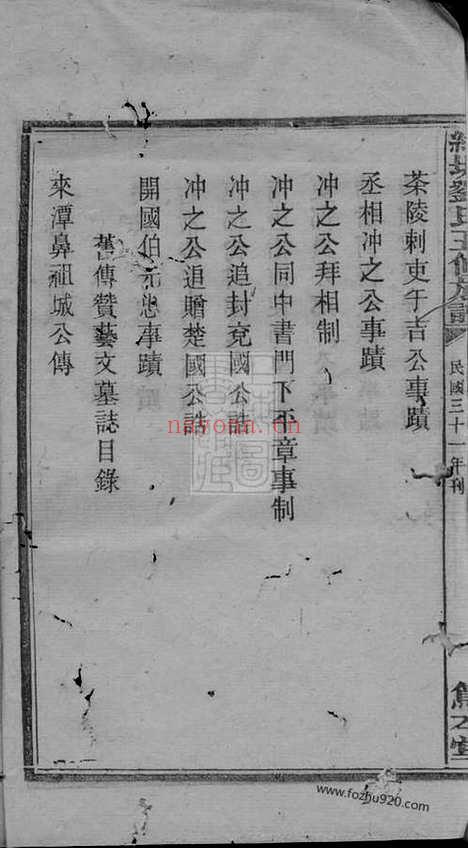 劉氏五修族譜
民國三十一年刊
茶陵刺吏于吉公事蹟
丞相冲之公事蹟
冲之公拜相制
冲之公同中書門下平章事制
冲之公追封兗國公誥
冲之公追贈楚國公誥
開國伯元忠事蹟
舊傳贊藝文墓誌目錄
來潭鼻祖城公傳
nayona.cn
www.fozhu920.com